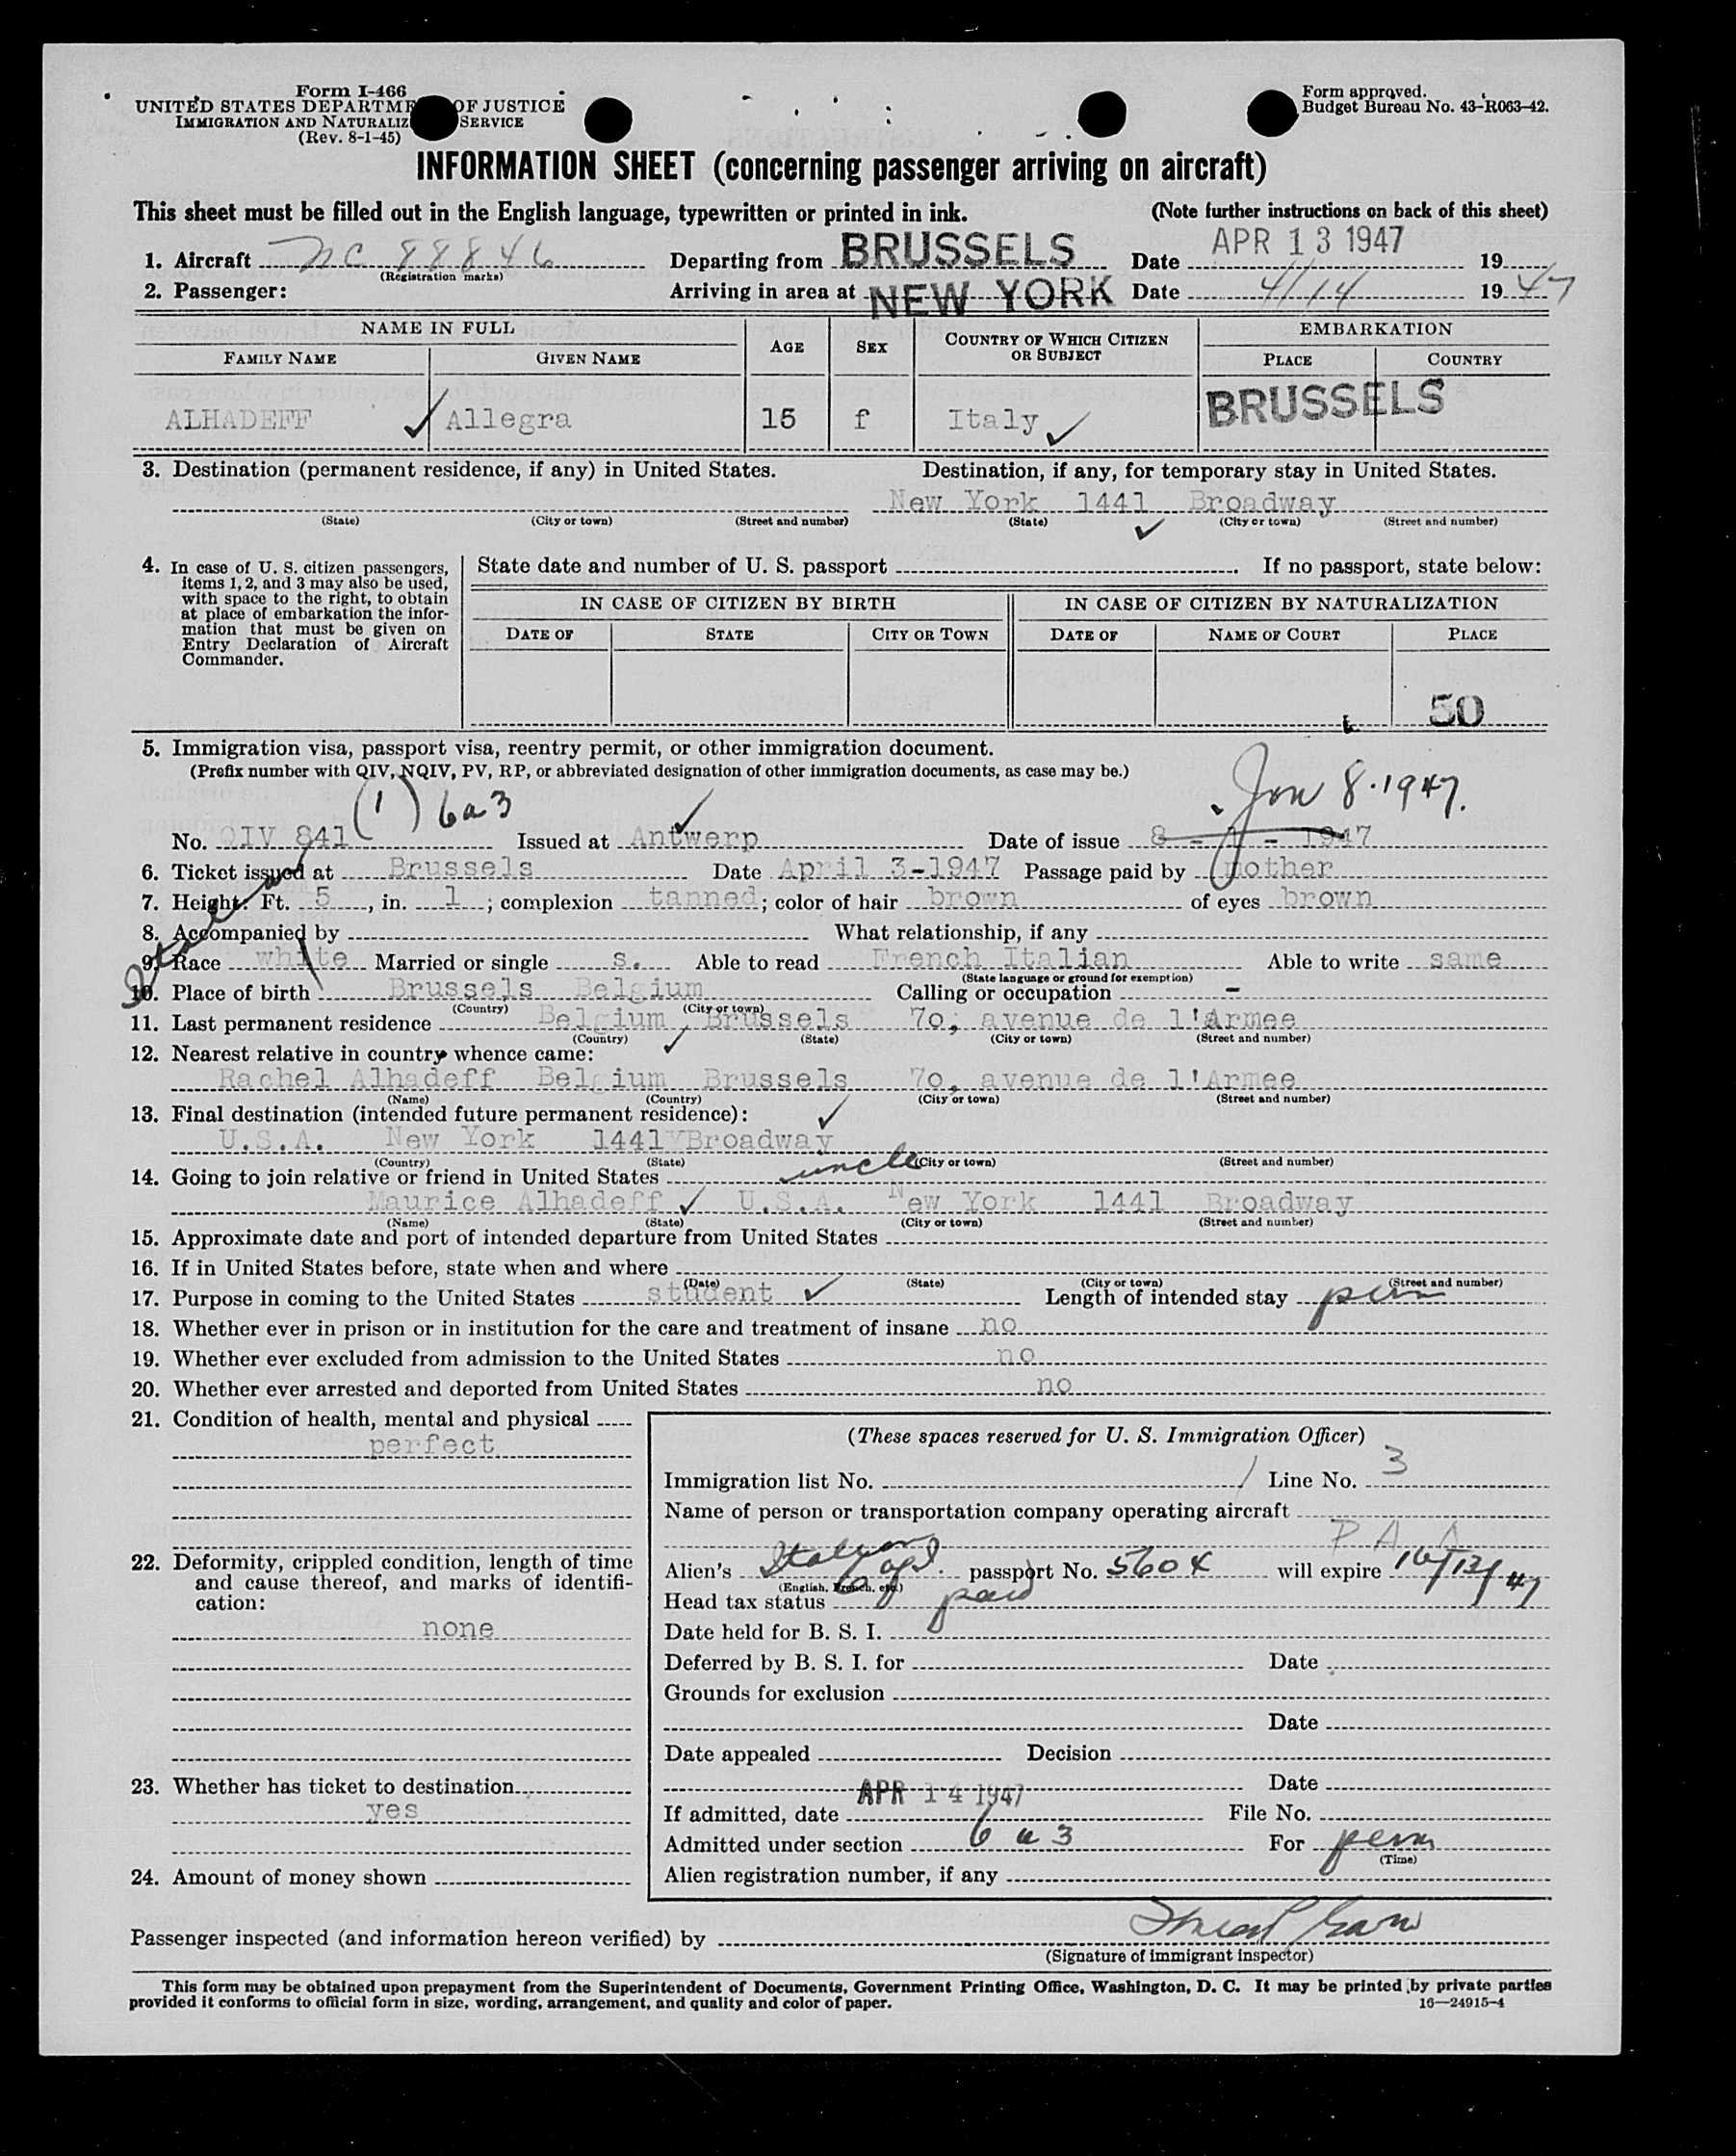 Form I-466
UNITED STATES DEPARTME OF JUSTICE
IMMIGRATION AND NATURALIZ SERVICE
(Rev. 8-1-45)
Form approved.
Budget Bureau No. 43-R063-42.
INFORMATION SHEET (concerning passenger arriving on aircraft)
This sheet must be filled out in the English language, typewritten or printed in ink. (Note further instructions on back of this sheet)
1. Aircraft NC 88846 Departing from BRUSSELS Date APR 13 1947 19
(Registration marks)
2. Passenger: Arriving in area at NEW YORK Date 4/14 1947
NAME IN FULL AGE SEX COUNTRY OF WHICH CITIZEN OR SUBJECT EMBARKATION
FAMILY NAME GIVEN NAME PLACE COUNTRY
ALHADEFF ✓ Allegra 15 f Italy ✓ BRUSSELS
3. Destination (permanent residence, if any) in United States. Destination, if any, for temporary stay in United States.
New York 1441 Broadway
(State) (City or town) (Street and number) (State) ✓ (City or town) (Street and number)
4. In case of U. S. citizen passengers, items 1, 2, and 3 may also be used, with space to the right, to obtain at place of embarkation the information that must be given on Entry Declaration of Aircraft Commander.
State date and number of U. S. passport . If no passport, state below:
IN CASE OF CITIZEN BY BIRTH IN CASE OF CITIZEN BY NATURALIZATION
DATE OF STATE CITY OR TOWN DATE OF NAME OF COURT PLACE
50
5. Immigration visa, passport visa, reentry permit, or other immigration document.
(Prefix number with QIV, NQIV, PV, RP, or abbreviated designation of other immigration documents, as case may be.)
(1) 6a3 ✓ Jan 8. 1947.
No. QIV 841 Issued at Antwerp Date of issue 8 - 1 - 1947
6. Ticket issued at Brussels Date April 3-1947 Passage paid by mother
7. Height: Ft. 5, in. 1; complexion tanned; color of hair brown of eyes brown
8. Accompanied by What relationship, if any
9. Race white Married or single s. Able to read French Italian Able to write same
(State language or ground for exemption)
10. Place of birth Brussels Belgium Calling or occupation -
(Country) (City or town)
11. Last permanent residence Belgium, Brussels 70, avenue de l'Armee
(Country) (State) (City or town) (Street and number)
12. Nearest relative in country whence came: ✓
Rachel Alhadeff Belgium Brussels 70, avenue de l'Armee
(Name) (Country) (City or town) (Street and number)
13. Final destination (intended future permanent residence): ✓
U.S.A. New York 1441 Broadway
(Country) (State) (City or town) (Street and number)
14. Going to join relative or friend in United States uncle
Maurice Alhadeff ✓ U.S.A. New York 1441 Broadway
(Name) (State) (City or town) (Street and number)
15. Approximate date and port of intended departure from United States
16. If in United States before, state when and where
(Date) (State) (City or town) (Street and number)
17. Purpose in coming to the United States student ✓ Length of intended stay perm
18. Whether ever in prison or in institution for the care and treatment of insane no
19. Whether ever excluded from admission to the United States no
20. Whether ever arrested and deported from United States no
21. Condition of health, mental and physical
perfect
22. Deformity, crippled condition, length of time and cause thereof, and marks of identification:
none
23. Whether has ticket to destination
yes
24. Amount of money shown
(These spaces reserved for U. S. Immigration Officer)
Immigration list No. 1 Line No. 3
Name of person or transportation company operating aircraft
P A A
Alien's Italian passport No. 5604 will expire
(English, French, etc.)
Head tax status paid
Date held for B. S. I.
Deferred by B. S. I. for Date
Grounds for exclusion
Date
Date appealed Decision
Date
If admitted, date APR 14 1947 File No.
Admitted under section 6 a 3 For perm
(Time)
Alien registration number, if any
Passenger inspected (and information hereon verified) by
(Signature of immigrant inspector)
This form may be obtained upon prepayment from the Superintendent of Documents, Government Printing Office, Washington, D. C. It may be printed by private parties
provided it conforms to official form in size, wording, arrangement, and quality and color of paper. 16—24915-4